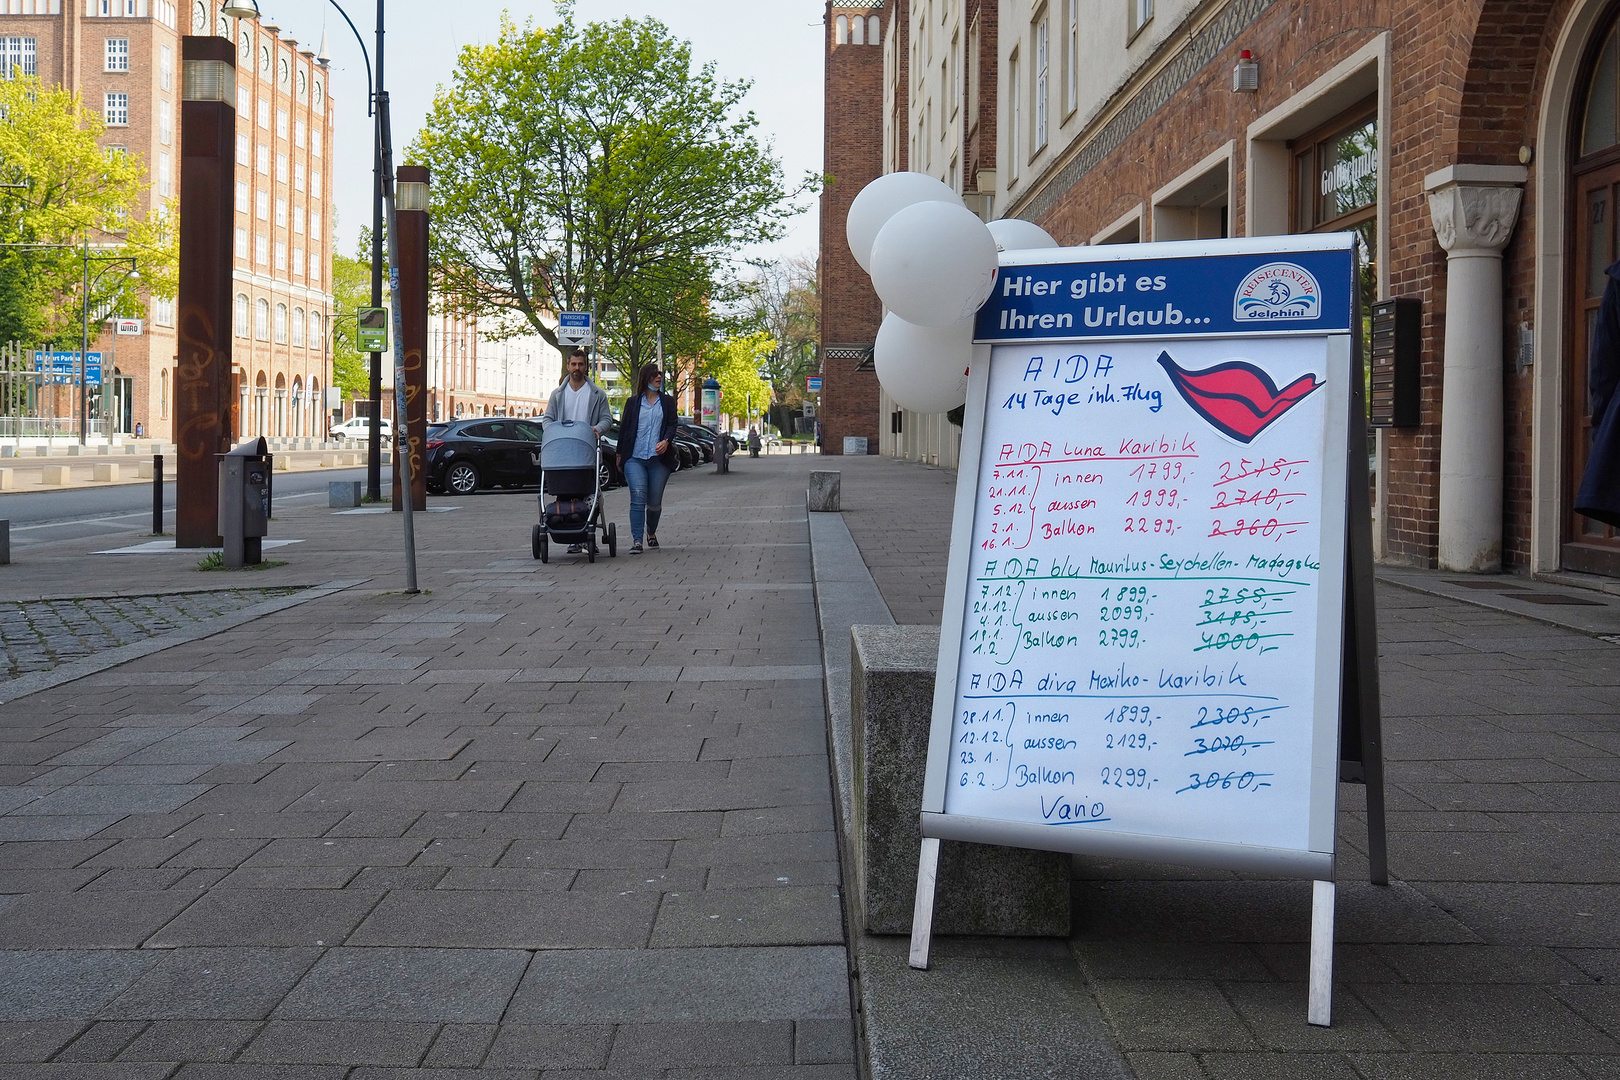 Hier gibt es
Ihren Urlaub...
REISECENTER
delphini
AIDA
14 Tage ink. Flug
AIDA Luna Karibik
7.11. innen 1799,- 2575,-
21.11. aussen 1999,- 2710,-
5.12. Balkon 2299,- 2960,-
2.1.
16.1.
AIDA blu Mauritus-Seychellen-Madagska
7.12. innen 1899,- 2755,-
21.12. aussen 2099,- 3185,-
4.1. Balkon 2799,- 4000,-
18.1.
1.2.
AIDA diva Mexiko-Karibik
28.11. innen 1899,- 2305,-
12.12. aussen 2129,- 3070,-
23.1. Balkon 2299,- 3060,-
6.2.
Vario
27
PARKSCHEIN-
AUTOMAT
WIRO